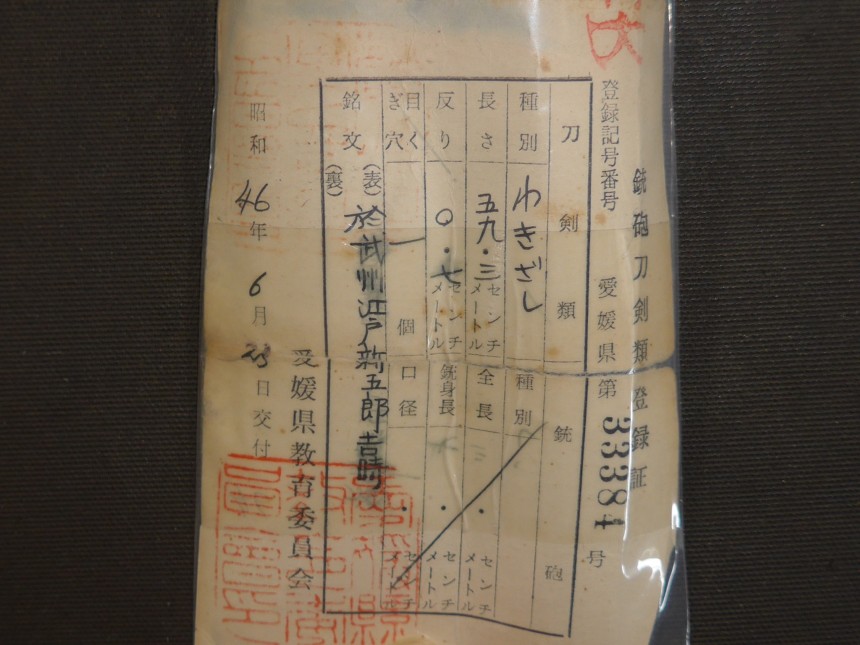 銃砲刀剣類登録証
登録記号番号 愛媛県 第 33384 号
刀剣類
種別 わきざし
長さ 五九・三 センチメートル
反り 〇・七 センチメートル
目くぎ穴 一 個
銘文 (表) 於武州江戸新五郎吉時
(裏)
銃砲
種別
全長 ・ センチメートル
銃身長 ・ センチメートル
口径 ・ センチメートル
昭和 46年 6月 23日交付
愛媛県教育委員会